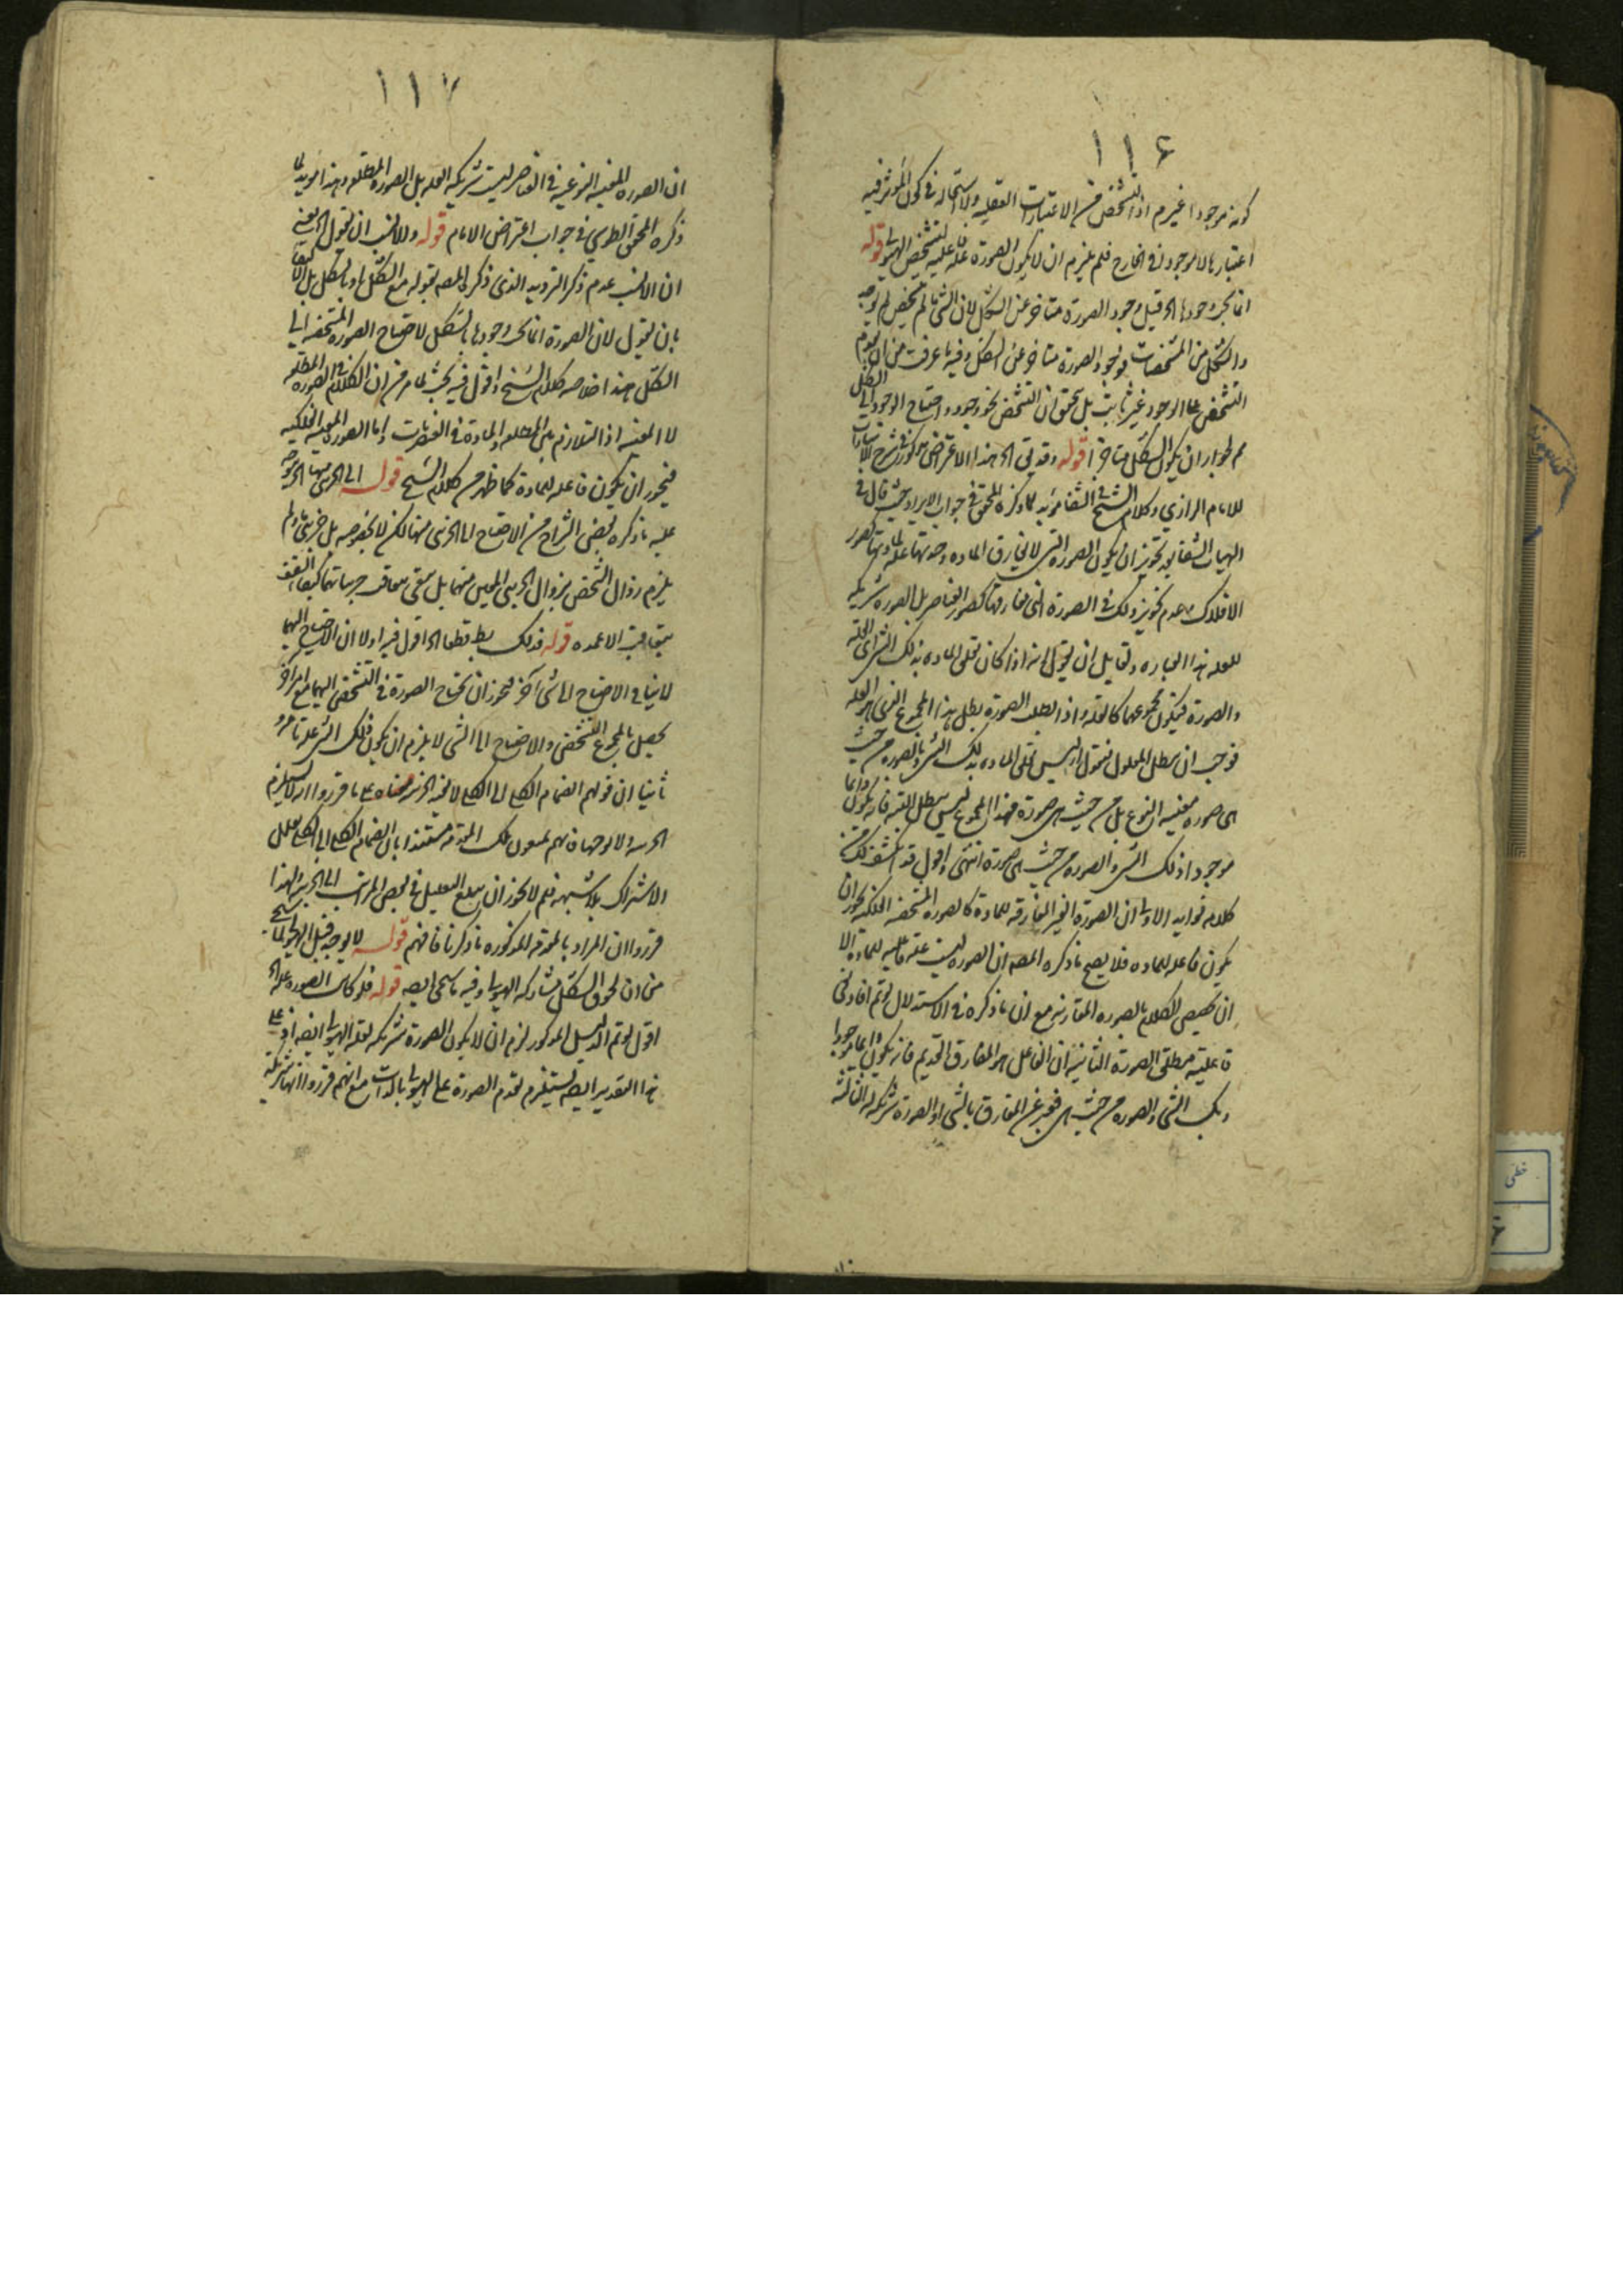 ١١٤
كونه موجودا غيرم اذ التشخص من الاعتبارات العقليه ولا استحاله فى كون المؤثر فيه
اعتباريا لا موجودا فى الخارج فلم يلزم ان لا يكون الصورة علة فاعليه لتشخص الهيولى قوله
انما يجب وجودها الخ قيل وجود الصورة متأخر عن الشكل لان الشئ ما لم يتشخص لم يوجد
والشكل من المشخصات فوجود الصورة متأخر عن الشكل وفيه ما عرفت من ان تقدم
التشخص على الوجود غير ثابت بل تحقق ان التشخص نحو وجود واحتياج الوجود الى الشكل
مم لجواز ان يكون الشكل متأخرا قوله وقد بقى الخ هذا الاعتراض مذكور فى شرح الاشارات
للامام الرازي وكلام الشيخ فى الشفا مؤيد لما ذكره المحقق فى جواب الايراد حيث قال فى
الهيات الشفا بعد تجويز ان يكون الصورة التى لا تفارق المادة وحدتها علة لمادتها كصور
الافلاك وعدم تجويز ذلك فى الصورة التى تفارقها كصور العناصر بل الصورة شريكة
للعلة هذا العبارة ولقايل ان يقول انه اذا كان تعلق المادة بذلك الشئ اى العلة
والصورة فيكون مجموعهما كالعلة واذا بطلت الصورة بطل هذا المجموع الذى هو العلة
فوجب ان يبطل المعلول فنقول انه ليس تعلق المادة بذلك الشئ وبالصورة من حيث
هى صورة معينه النوع بل من حيث هى صورة فهذا المجموع ليس يبطل البتة فانه يكون دائما
موجودا ذلك الشئ والصورة من حيث هى صورة انتهى واقول قد انكشف لك من
كلامه فوايد الاولى ان الصورة الغير المفارقه للمادة كالصورة المشخصه الفلكيه يجوز ان
يكون فاعله للمادة فلا يصح ما ذكره المصه ان الصورة ليست علة فاعليه للمادة الا
ان تخصيص الكلام بالصورة المفارقة مع ان ما ذكره فى الاستدلال لو تم افاد نفى
فاعلية مطلق الصورة الثانية ان الفاعل هو المفارق القديم فانه يكون دائما موجودا
ذلك الشئ والصورة من حيث هى فعبر عن المفارق بالشئ او الصورة شريكه له الثالثه
١١٧
ان الصورة المعينه النوعيه فى العناصر ليست شريكه العله بل الصورة المطلقه وهذا مؤيد لما
ذكره المحقق الطوسي فى جواب اعتراض الامام قوله والانسب ان يقول الخ يعنى
ان الانسب عدم ذكر الترديد الذى ذكره المصه بقوله مع الشكل او بالشكل بل الاكتفاء
بان يقول لان الصورة انما يجب وجودها بالشكل لاحتياج الصورة المشخصه الى
الشكل هذا خلاصه كلام الشيخ واقول فيه بحث لما مر من ان الكلام فى الصورة المطلقه
لا المعينه اذ التلازم بين المطلقه والمادة فى العنصريات واما الصورة المعينه الفلكيه
فيجوز ان يكون فاعله للمادة كما ظهر من كلام الشيخ قوله الى الجزئى منها الخ يتوجه
عليه ما ذكره بعض الشراح من الاحتياج الى الجزئى منها لكن لا بخصوصه بل جزئى ما ولم
يلزم زوال الشخص بزوال الجزئى المعين منها بل يبقى بتعاقب جزئياتها كبقاء السقف
بتعاقب الاعمدة قوله فذلك بط قطعا الخ اقول فيه اولا ان الاحتياج اليها
لا ينافى الاحتياج الى شئ آخر فيجوز ان تحتاج الصورة فى التشخص اليهما مع امر آخر
يحصل بالمجموع التشخص والاحتياج الى الشئ لا يلزم ان يكون ذلك الشئ علة تامة
ثانيا ان قولهم انضمام الكلى الى الكلى لا يفيد الجزئية معناه على ما قرروا انه لا يستلزم
الجزئية ولا يوجبها فانهم تلك المقدمة مستندا بان انضمام الكلى الى الكلى يقلل
الاشتراك بلا شبهه فلم لا يجوز ان يبلغ التقليل فى بعض المراتب الى الجزئية ولهذا
قرروا ان المراد بالمقدمة المذكورة ما ذكرنا فافهم قوله لا يوجد قبل الهيولى لما سيجئ
من ان لحوق الشكل بمشاركة الهيولى وفيه ما سيجئ ايضه قوله فلو كانت الصورة علة الخ
اقول لو تم الدليل المذكور لزم ان لا يكون الصورة شريكه لعله الهيولى ايضه اذ على
هذا التقدير ايضه يستلزم تقدم الصورة على الهيولى بالذات مع انهم قرروا انها شريكة
خطى